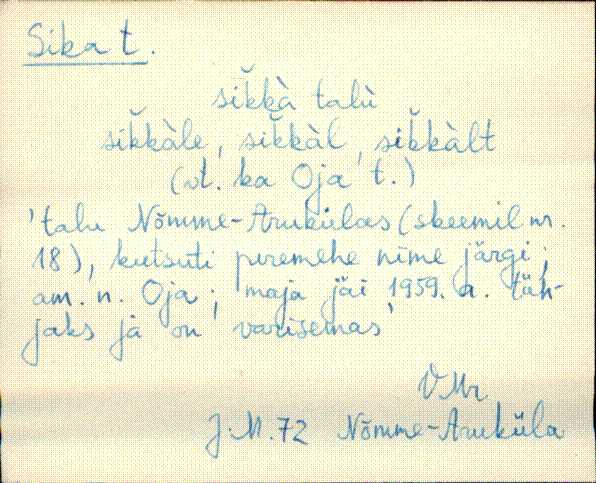 Sika t.
sĭkkà talù
sĭkkàle, sĭkkàl, sĭkkàlt
(vt. ka Oja t.)
'talu Nõmme-Arukülas (skeemil nr.
18), kutsuti peremehe nime järgi;
am. n. Oja; maja jäi 1959. a. tüh-
jaks ja on varisemas'
V Mr
J.M.72 Nõmme-Aruküla